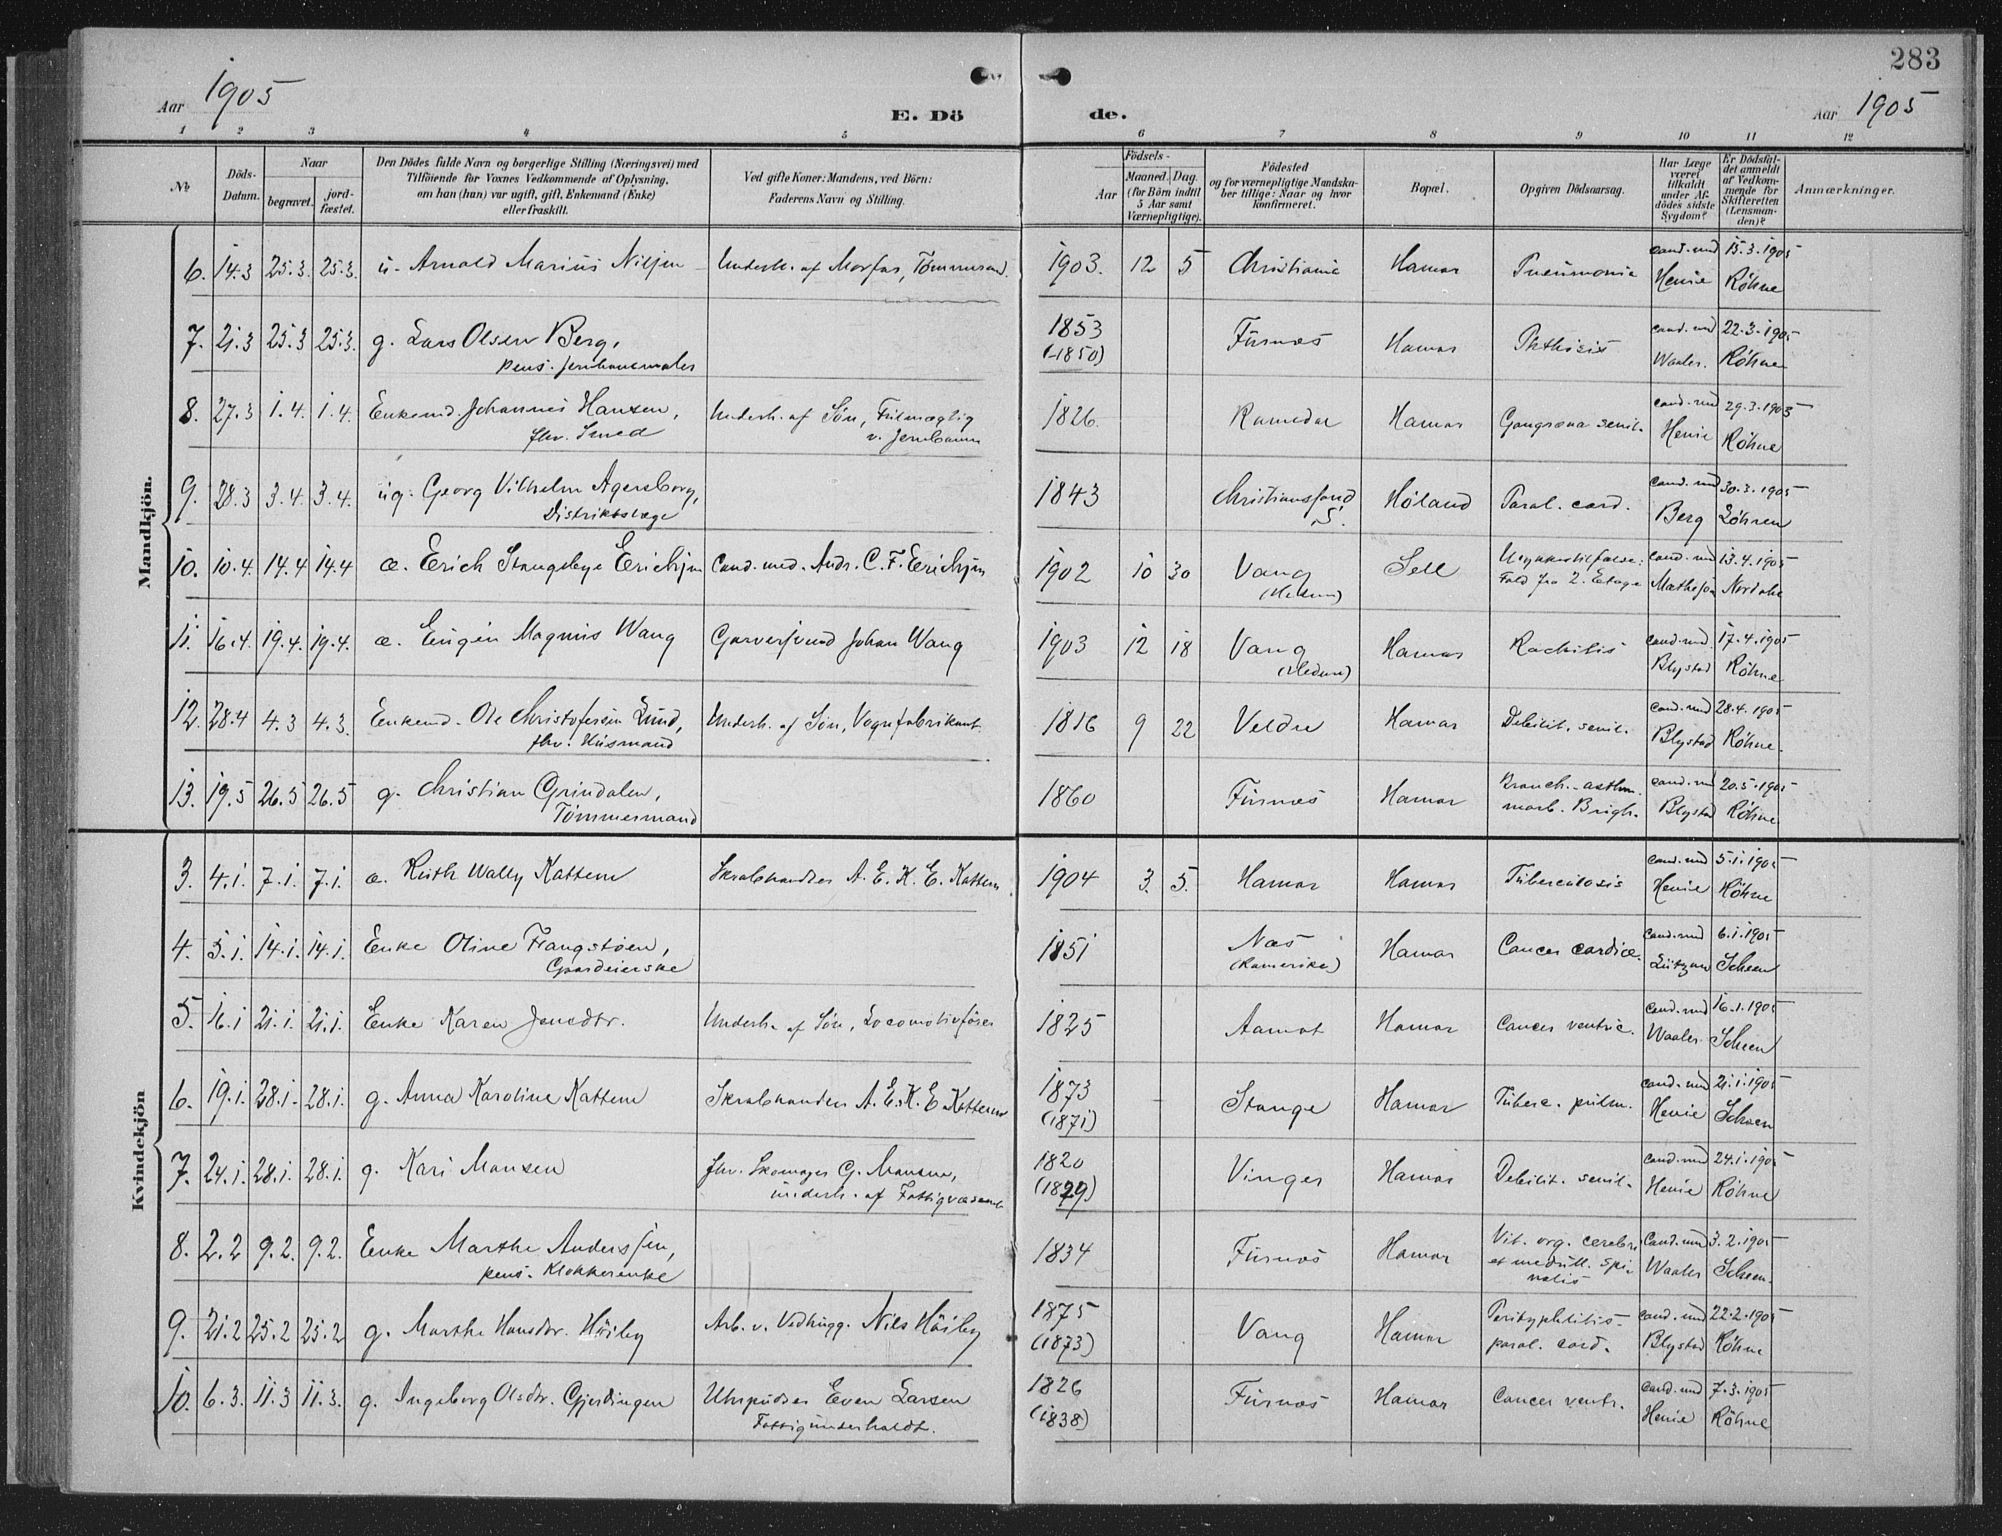 283
Aar 1905
E. Dö
de.
Aar 1905
1 2 3 4 5 6 7 8 9 10 11 12
No
Döds-Datum.
Naar
begravet.
jord-fæstet.
Den Dödes fulde Navn og borgerlige Stilling (Næringsvei) med
Tilföiende for Voxnes Vedkommende af Oplysning,
om han (hun) var ugift, gift, Enkemand (Enke)
eller fraskilt.
Ved gifte Koner: Mandens, ved Börn:
Faderens Navn og Stilling.
Födsels-
Aar
Maaned. Dag.
(for Börn indtil
5 Aar samt
Værnepligtige).
Födested
og for værnepligtige Mandska-
ber tillige: Naar og hvor
konfirmeret.
Bopæl.
Opgiven Dödsaarsag.
Har Læge
været
tilkaldt
under Af-
dödes sidste
Sygdom?
Er Dödsfal-
det anmeldt
af Vedkom-
mende for
Skifteretten
(Lensman-
den)?
Anmærkninger.
Mandkjön.
6. 14.3 25.3. 25.3. u. Arnold Marius Nilsen Underh. af Morfar, Tømmermand. 1903. 12 5 Christiania Hamar Pneumonia cand. med Henie 15.3.1905 Röhne
7. 21.3 25.3 25.3. g. Lars Olsen Berg,
pens. Jernbanemaler 1853 (1850) Furnæs Hamar Phthisis cand. med Waaler. 22.3.1905 Röhne
8. 27.3 1.4. 1.4. Enkemd. Johannes Hansen,
fhv. Smed Underh. af Søn, Fulmægtig
v. Jernbanen 1826. Romedal Hamar Gangræna senil. cand. med Henie 29.3.1905 Röhne
9. 28.3 3.4. 3.4. ug. Georg Vilhelm Agersborg,
Distriktslæge 1843 Christianssand
S. Høland Paral. card. cand. med Berg 30.3.1905 Löhren
10. 10.4. 14.4 14.4 æ. Erich Stangebye Erichsen Cand. med. Andr. C. F. Erichsen 1902 10 30 Vang
(Hedem) Sell Ulykkestilfælde:
Fald fra 2. Etage cand. med Mathesen 13.4.1905 Nordahl
11. 16.4. 19.4. 19.4. æ. Eugén Magnus Wang Garversvend Johan Wang 1903 12 18 Vang
(Hedem) Hamar Rachitis cand. med. Blystad 17.4.1905 Röhne
12. 28.4 4.3 4.3. Enkemd. Ole Christofersen Lund,
fhv. Husmand Underh. af Søn, Vognfabrikant. 1816 9 22 Veldre Hamar Debilit. senil. cand. med Blystad 28.4.1905 Röhne.
13. 19.5 26.5 26.5 g. Christian Grindalen,
Tömmermand 1860 Furnæs Hamar Bronch. asthm.
morb. Brigh. cand. med Blystad 20.5.1905 Röhne
Kvindekjön
3. 4.1. 7.1. 7.1. æ. Ruth Wally Kattem Skrabhandler A. E. K. E. Kattem 1904 3. 5. Hamar Hamar Tuberculosis cand. med Henie 5.1.1905 Röhne
4. 5.1. 14.1. 14.1. Enke Oline Frangstøen,
Gaardeierske 1851 Næs
(Romerike) Hamar Cancer cardiæ. cand. med Lützow 6.1.1905 Scheen
5. 16.1 21.1. 21.1. Enke Karen Jensdtr. Underh. af Søn, Locomotivfører 1825 Aamot Hamar Cancer ventric. cand. med Waaler 16.1.1905 Scheen
6. 19.1. 28.1. 28.1. g. Anna Karoline Kattem Skrabhandler A. E. K. E. Kattem 1873
(1871) Stange Hamar Tuberc. pulm. cand. med Henie 21.1.1905 Scheen
7. 24.1. 28.1. 28.1. g. Kari Monsen fhv. Skomager G. Monsen,
underh. af Fattigvæsenet 1820
(1829) Vinger Hamar Debilit. senil. cand. med Henie 24.1.1905 Röhne
8. 2.2 9.2. 9.2. Enke Marthe Anderssen,
pens. Klokkerenke 1834 Furnæs Hamar Vit. org. cerebri
et medull. spi-
nalis Cand. med Waaler 3.2.1905 Scheen.
9. 21.2 25.2 25.2 g. Marthe Hansdtr. Höiby Arb. v. Vedhugg. Nils Höiby 1875
(1873) Vang Hamar Perityphlitis-
paral. cord. cand. med Blystad 22.2.1905 Röhne
10. 6.3. 11.3 11.3. g. Ingeborg Olsdtr. Gjerdingen Uhrpudser Even Larsen
Fattigunderholdt. 1826
(1838) Furnæs Hamar Cancer ventr. cand. med Henie 7.3.1905 Röhne